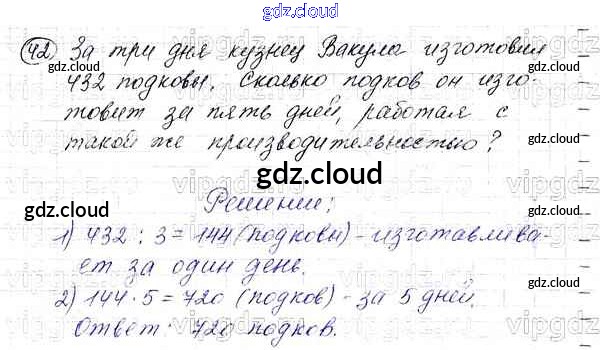 gdz.cloud
42 За три дня кузнец Вакула изготовил
432 подковы. Сколько подков он изго-
товит за пять дней, работая с
такой же производительностью?
gdz.cloud
gdz.cloud
gdz.cloud
Решение:
1) 432 : 3 = 144 (подковы) - изготавлива-
ет за один день.
gdz.cloud
gdz.cloud
2) 144 · 5 = 720 (подков) - за 5 дней.
Ответ: 720 подков.
gdz.cloud